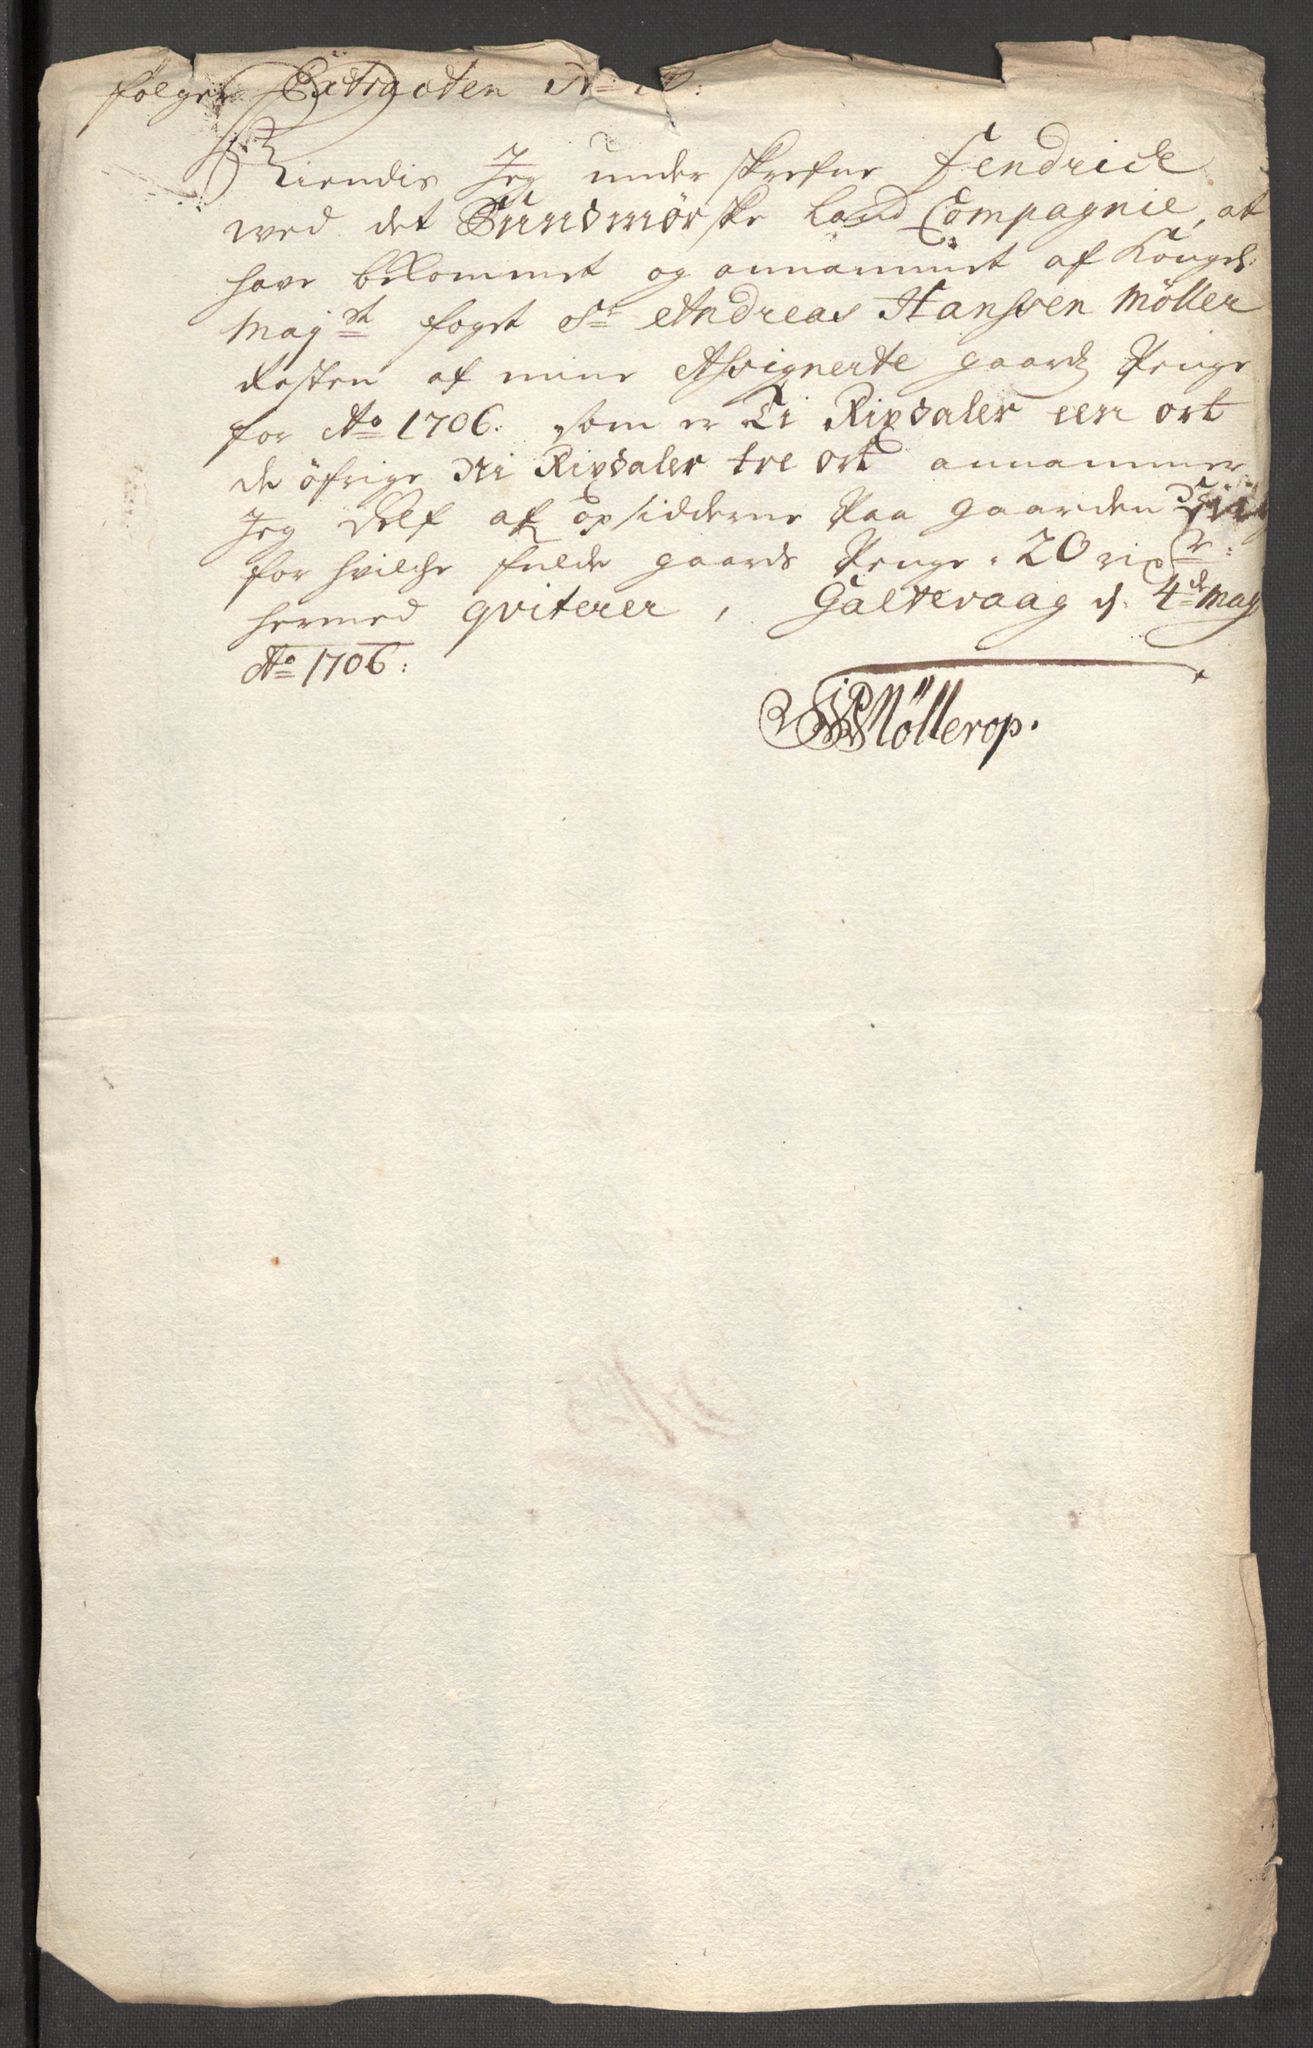 følger Extracten No
Kiendis Jeg under skrefne fendrick
wed det Sundmørske land Compagnie, at
have bekommet og annammet af Kongel:
Mayst foget Sr Andreas Hanssen Möller
Resten af mine Assignerte gaards Penge
for Ao 1706: som er Ti Rixdaler een ort
de öfrige Ni Rixdaler tre ort annammer
Jeg self af opsidderne Paa gaarden
for hvilche fulde gaards Penge 20 rixdr:
hermed qviterer, Galtevaag d: 4de May
Ao 1706:
Möllerop.